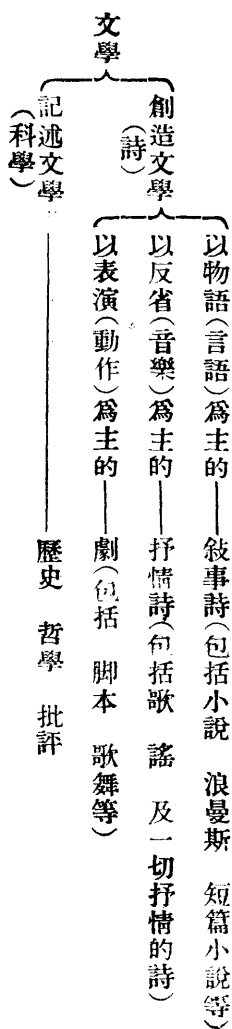 文學
創造文學
（詩）
以物語（言語）爲主的——敍事詩（包括小說　浪曼斯　短篇小說等）
以反省（音樂）爲主的——抒情詩（包括歌　謠　及一切抒情的詩）
以表演（動作）爲主的——劇（包括　脚本　歌舞等）
記述文學——歷史　哲學　批評
（科學）